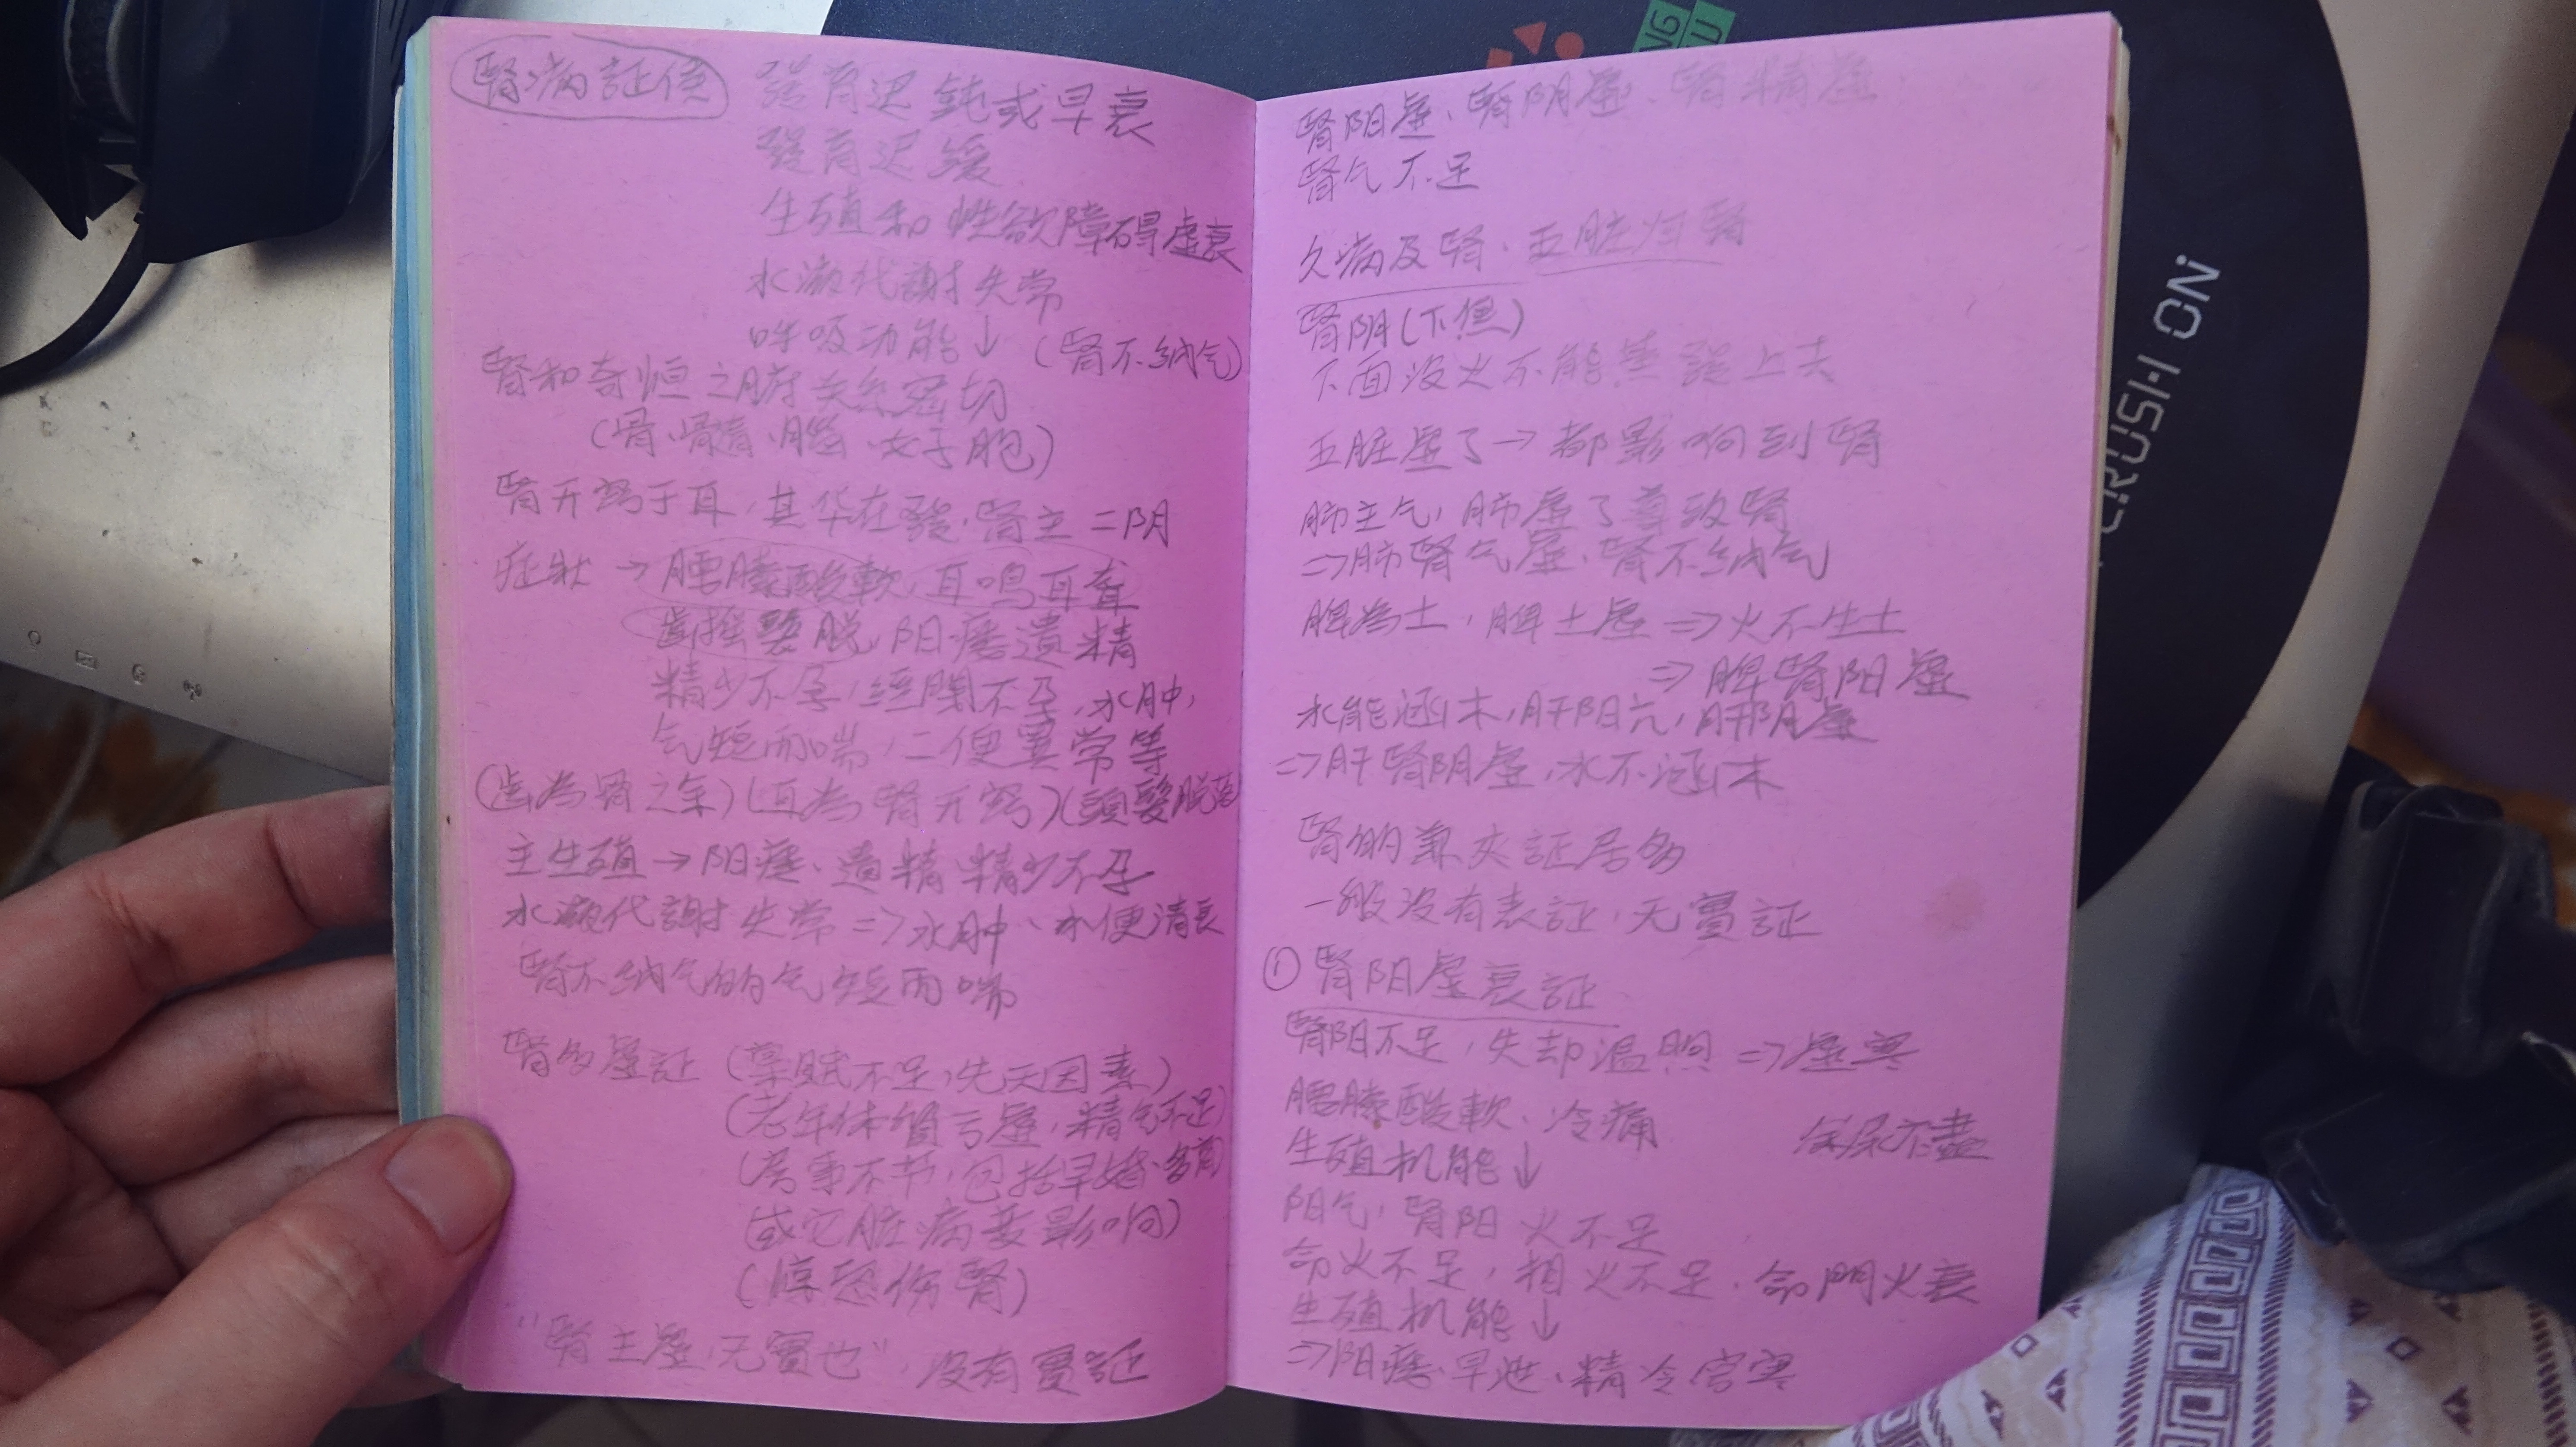 腎病証候
發育迟鈍或早衰
發育迟緩
生殖和性欲障碍虚衰
水液代謝失常
呼吸功能↓ (腎不纳气)
腎和奇恒之腑关系密切
(骨、骨髓、腦、女子胞)
腎开窍于耳,其华在發,腎主二阴
症狀→腰膝酸軟,耳鳴耳聋
齒摇髮脱,阳痿遺精
精少不孕,經閉不孕,水肿,
气短而喘,二便異常等
(齒為骨之余)(耳為腎开窍)(頭髮脱落
主生殖→阳痿、遺精、精少不孕
水液代謝失常⇒水肿、水便清長
腎不纳气的气短而喘
腎多虚証 (禀賦不足,先天因素)
(老年体質亏虚,精气不足)
(房事不节,包括早婚、多育)
(或它脏病变影响)
(惊恐伤腎)
"腎主虚,无實也",没有實証
腎阳虚、腎阴虚、腎精虚
腎气不足
久病及腎、五脏归腎
腎阴(下焦)
下面没火不能蒸發上去
五脏虚了→都影响到腎
肺主气,肺虚了導致腎
⇒肺腎气虚,腎不纳气
脾為土,脾土虚⇒火不生土
⇒脾腎阳虚
水能涵木,肝阳亢,肝阴虚
⇒肝腎阴虚,水不涵木
腎的兼夹証居多
一般没有表証,无實証
① 腎阳虚衰証
腎阳不足,失却温煦⇒虚寒
腰膝酸軟、冷痛
余尿不盡
生殖机能↓
阳气,腎阳火不足
命火不足,相火不足,命門火衰
生殖机能↓
⇒阳痿、早泄、精冷宫寒
CRUSH ON
NG
U